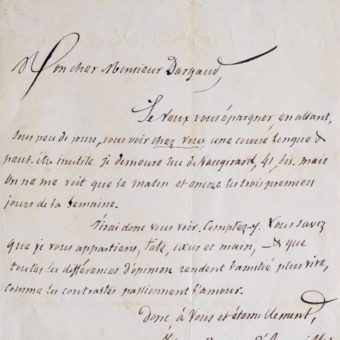 Mon cher Monsieur Dargaud,
Je veux vous épargner en allant,
sous peu de jours, vous voir chez vous une course longue &
peut-être inutile. Je demeure rue de Vaugirard, 41, bis. mais
on ne me voit que le matin et encore les trois premiers
jours de la semaine.
J'irai donc vous voir. Comptez-y. Vous savez
que je vous appartiens, tête, cœur et main, — & que
toutes les différences d'opinion rendent l'amitié plus vive,
comme les contrastes passionnent l'amour.
Donc à vous et éternellement,